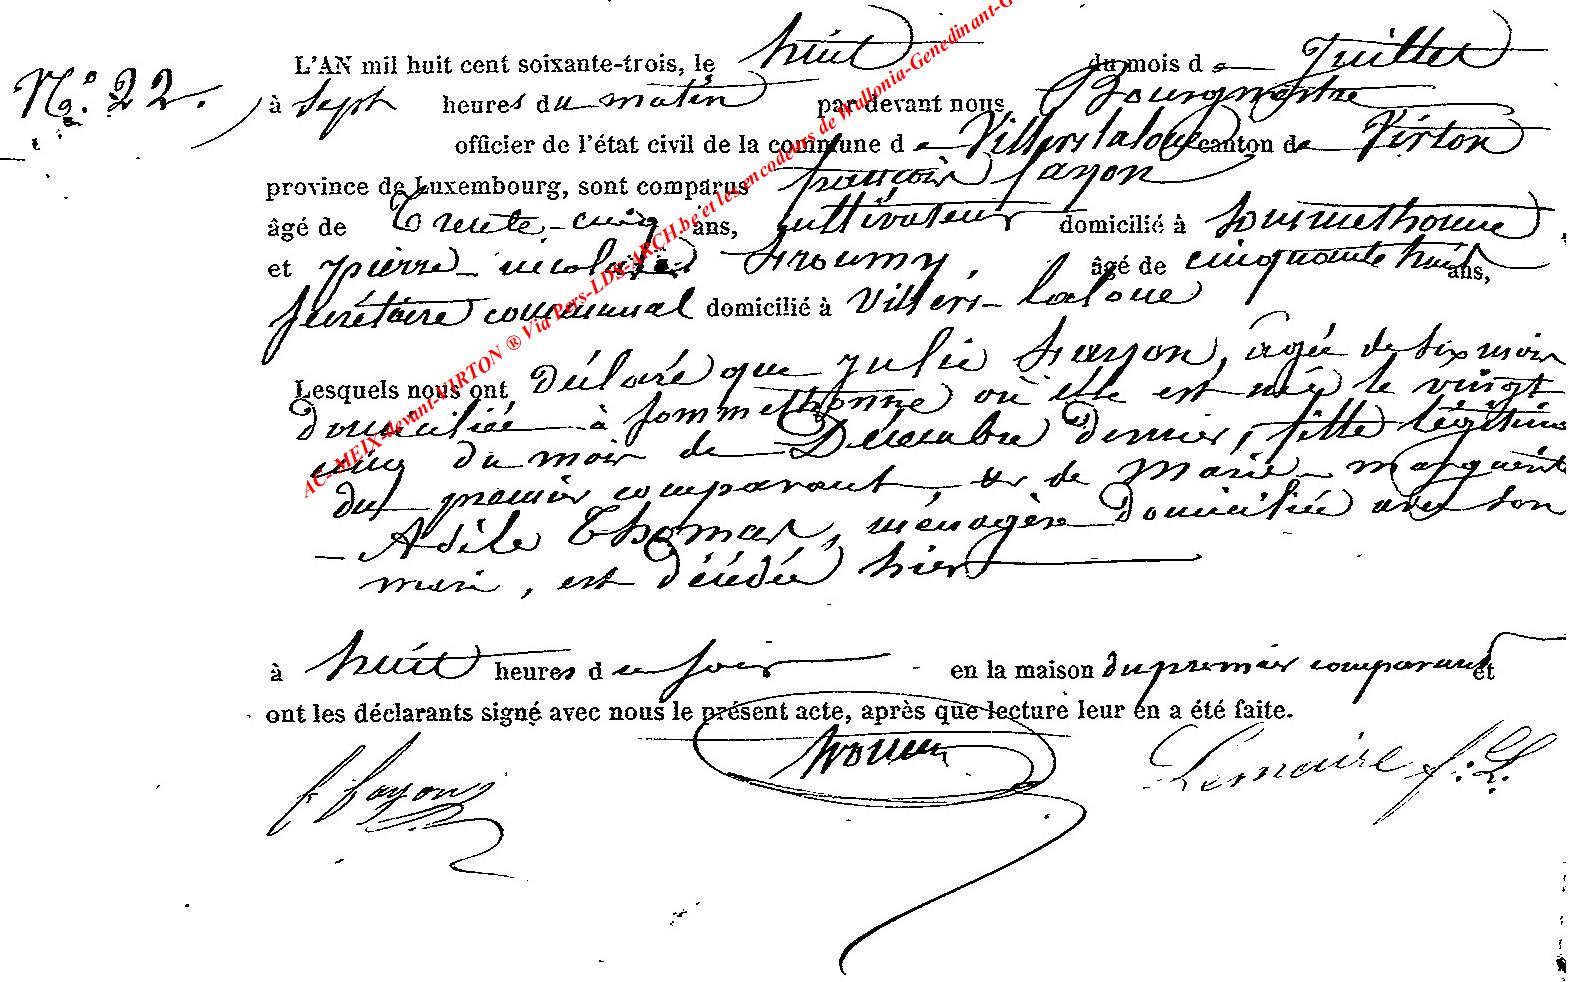 L'AN mil huit cent soixante-trois, le huit du mois de Juillet
N° 22.
à sept heures du matin par devant nous Bourgmestre
officier de l'état civil de la commune de Villerslaloue canton de Virton
province de Luxembourg, sont comparus françois fayon
âgé de Trente-cinq ans, cultivateur domicilié à Sommethonne
et pierre-nicolas âgé de cinquante huit ans,
secrétaire communal domicilié à Villers-laloue
Lesquels nous ont déclaré que Julie fayon, agée de six mois
domiciliée à Sommethonne où elle est née le vingt
cinq du mois de Décembre dernier, fille légitime
du premier comparant, et de Marie-marguerite
-Adèle Thomas, ménagère domiciliée avec son
mari, est décédée hier
à huit heures du soir en la maison du premier comparant et
ont les déclarants signé avec nous le présent acte, après que lecture leur en a été faite.
f fayon Lemaire f.: L.
AC-MEIX-devant-VIRTON ® Via Pers-LDS-ARCH.be et les encodeurs de Wallonia-Genedinant-G